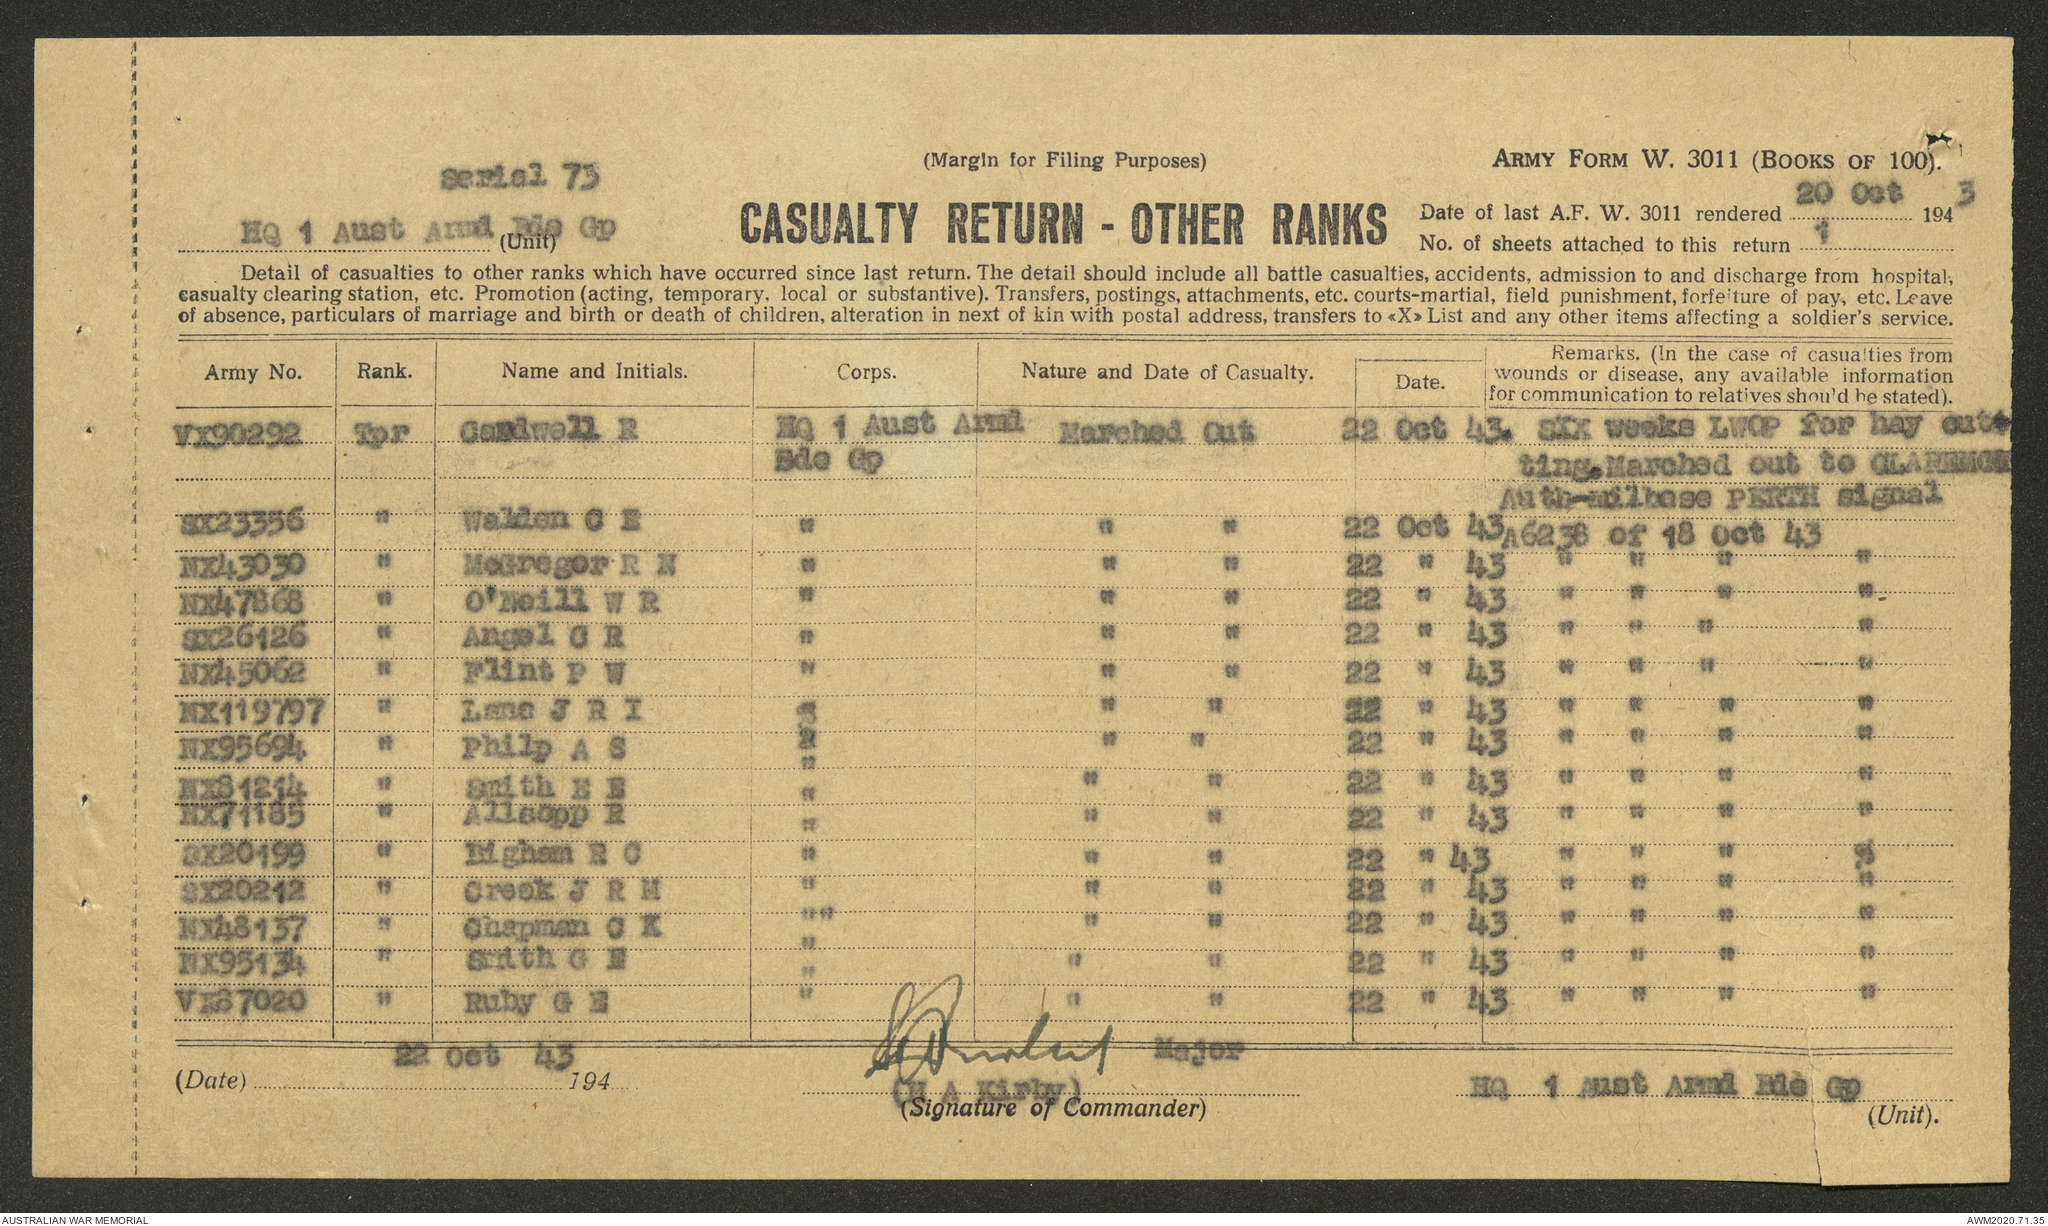 (Margin for Filing Purposes)
ARMY FORM W. 3011 (BOOKS OF 100).
Serial 73
HQ 1 Aust Armd Bde Gp
(Unit)
CASUALTY RETURN - OTHER RANKS
Date of last A.F. W. 3011 rendered 20 Oct 1943
No. of sheets attached to this return 1
Detail of casualties to other ranks which have occurred since last return. The detail should include all battle casualties, accidents, admission to and discharge from hospital,
casualty clearing station, etc. Promotion (acting, temporary, local or substantive). Transfers, postings, attachments, etc. courts-martial, field punishment, forfeiture of pay, etc. Leave
of absence, particulars of marriage and birth or death of children, alteration in next of kin with postal address, transfers to «X» List and any other items affecting a soldier's service.
Army No. Rank. Name and Initials. Corps. Nature and Date of Casualty. Date. Remarks. (In the case of casualties from
wounds or disease, any available information
for communication to relatives should be stated).
VX90292 Tpr R HQ 1 Aust Armd Marched Out 22 Oct 43. SIX weeks LWOP for hay cut-
Bde Gp ting. Marched out to CLAREMONT
Auth-milbase PERTH signal
SX23356 " Walden C E " " " 22 Oct 43 A6238 of 18 Oct 43
NX43030 " McGregor R N " " " 22 " 43 " " " "
NX47868 " O'Neill W R " " " 22 " 43 " " " "
SX26126 " Angel C R " " " 22 " 43 " " " "
NX45062 " Flint P W " " " 22 " 43 " " " "
NX119797 " Lane J R I " " " 22 " 43 " " " "
NX95694 " Philp A S " " " 22 " 43 " " " "
NX81214 " Smith E E " " " 22 " 43 " " " "
NX71185 " Allsopp R " " " 22 " 43 " " " "
SX20199 " Bigham R C " " " 22 " 43 " " " "
SX20212 " Creek J R M " " " 22 " 43 " " " "
NX48137 " Chapman C K "" " " 22 " 43 " " " "
NX95134 " Smith G E " " " 22 " 43 " " " "
VX87020 " Ruby G E " " " 22 " 43 " " " "
22 Oct 43
Major
(Date) 194
(H A Kirby)
HQ 1 Aust Armd Bde Gp
(Signature of Commander)
(Unit).
AUSTRALIAN WAR MEMORIAL
AWM2020.71.35